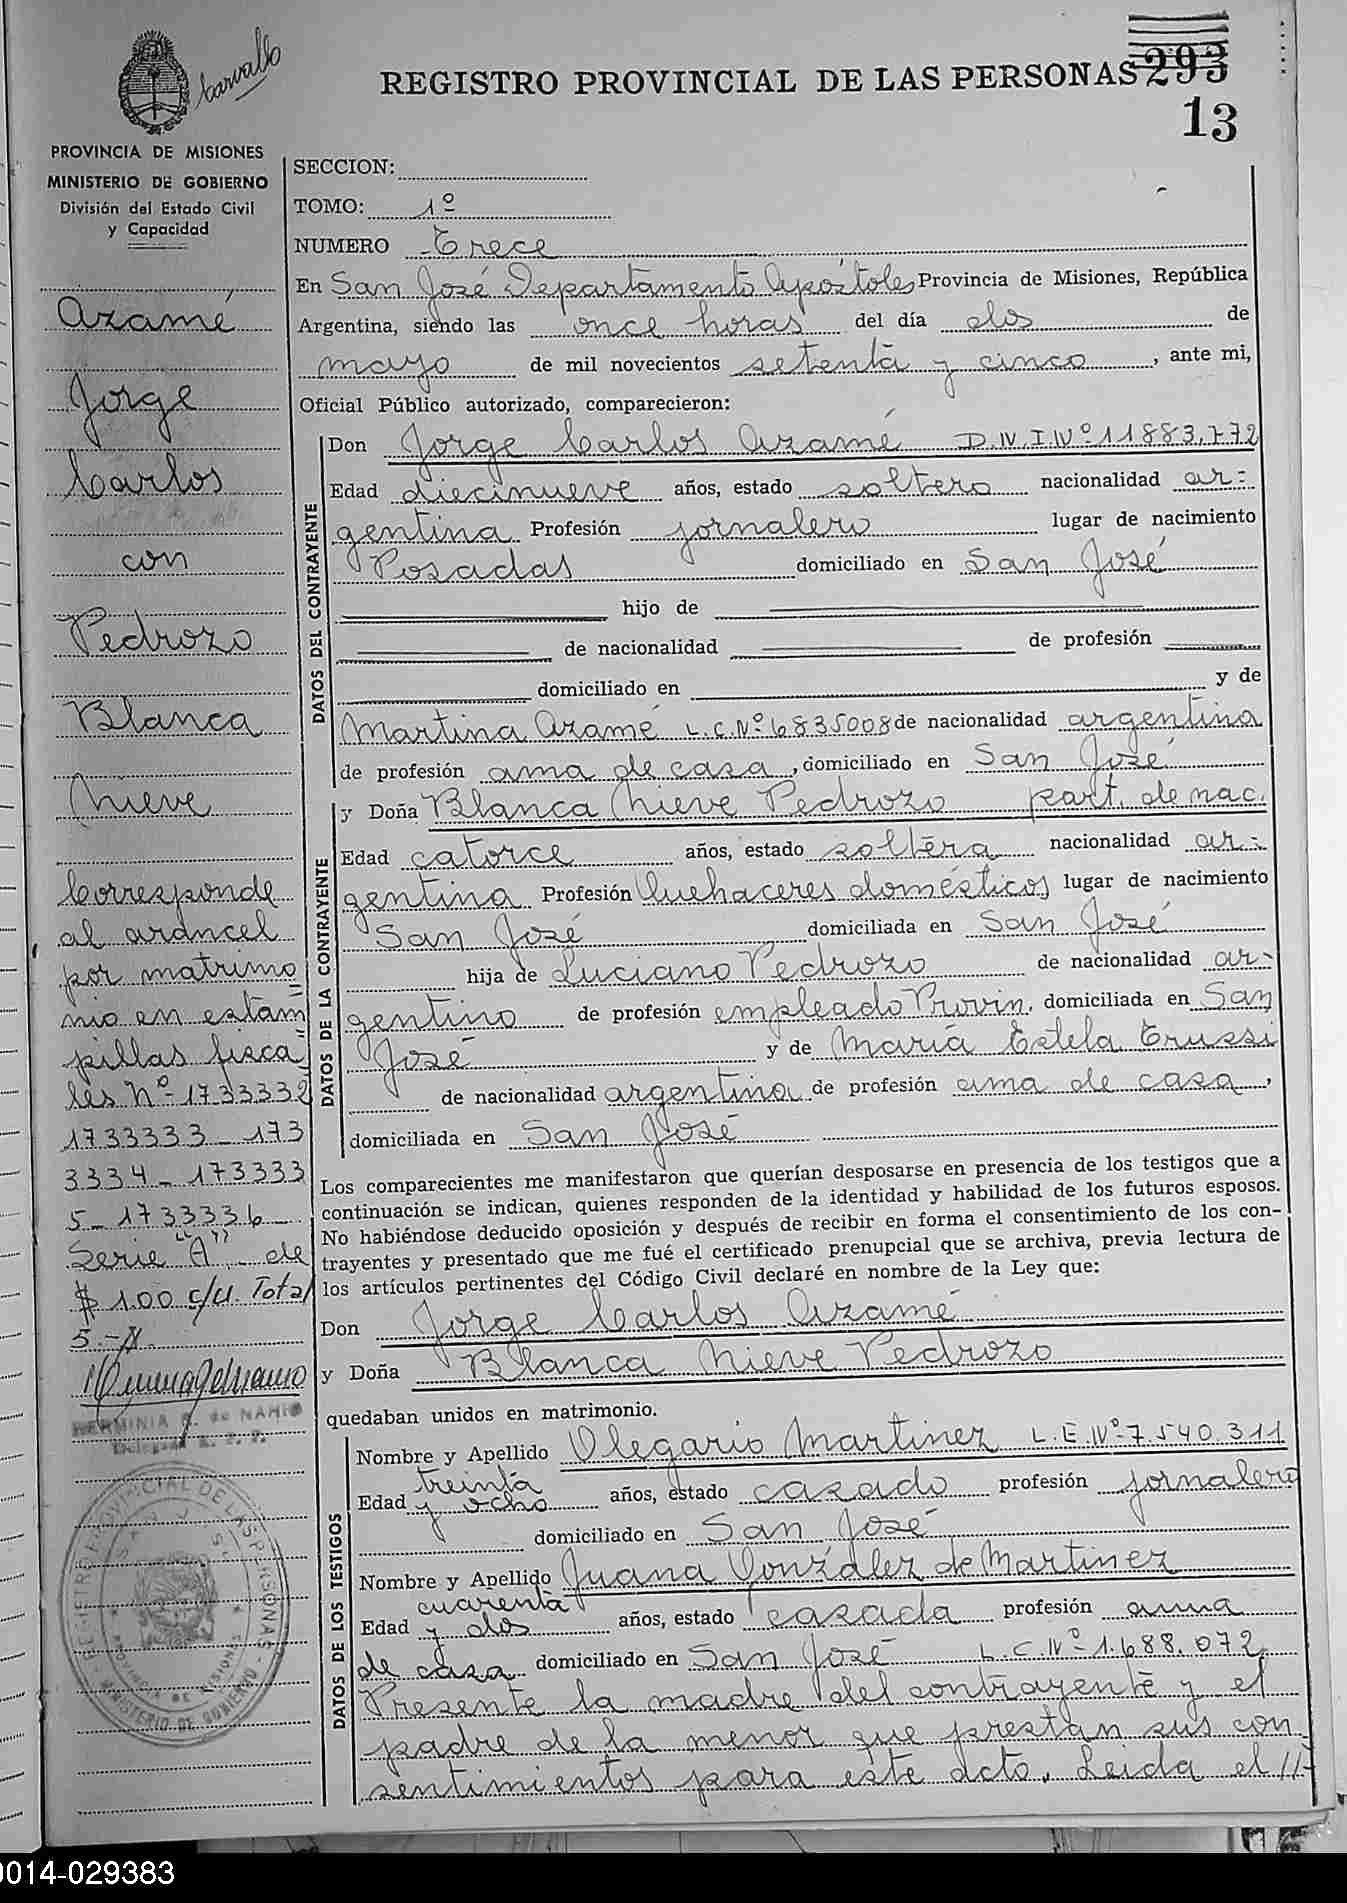 Carvallo
REGISTRO PROVINCIAL DE LAS PERSONAS 293
13
PROVINCIA DE MISIONES
MINISTERIO DE GOBIERNO
División del Estado Civil
y Capacidad
Azamé
Jorge
Carlos
con
Pedrozo
Blanca
Nieve
Corresponde
al arancel
por matrimo
nio en estam
pillas fisca
les Nº 1733332
1733333 - 173
3334 - 173333
5 - 1733336
Serie "A" de
$ 1.00 c/u. Total
5.-
HERMINIA G. de NAHIO
SECCION:
TOMO: 1º
NUMERO Trece
En San José Departamento Apóstoles Provincia de Misiones, República
Argentina, siendo las once horas del día dos de
mayo de mil novecientos setenta y cinco, ante mi,
Oficial Público autorizado, comparecieron:
DATOS DEL CONTRAYENTE
Don Jorge Carlos Azamé D.N.I.Nº 11883.772
Edad diecinueve años, estado soltero nacionalidad ar=
gentina Profesión jornalero lugar de nacimiento
Posadas domiciliado en San José
hijo de
de nacionalidad de profesión
domiciliado en y de
Martina Azamé L.C.Nº 6835008 de nacionalidad argentina
de profesión ama de casa, domiciliado en San José
DATOS DE LA CONTRAYENTE
y Doña Blanca Nieve Pedrozo part. de nac.
Edad catorce años, estado soltera nacionalidad ar=
gentina Profesión Quehaceres domésticos lugar de nacimiento
San José domiciliada en San José
hija de Luciano Pedrozo de nacionalidad ar=
gentino de profesión empleado Provin. domiciliada en San
José y de María Estela Trussi
de nacionalidad argentina de profesión ama de casa,
domiciliada en San José
Los comparecientes me manifestaron que querían desposarse en presencia de los testigos que a
continuación se indican, quienes responden de la identidad y habilidad de los futuros esposos.
No habiéndose deducido oposición y después de recibir en forma el consentimiento de los con-
trayentes y presentado que me fué el certificado prenupcial que se archiva, previa lectura de
los artículos pertinentes del Código Civil declaré en nombre de la Ley que:
Don Jorge Carlos Azamé
y Doña Blanca Nieve Pedrozo
quedaban unidos en matrimonio.
DATOS DE LOS TESTIGOS
Nombre y Apellido Olegario Martinez L.E.Nº 7.540.311
Edad treinta y ocho años, estado casado profesión jornalero
domiciliado en San José
Nombre y Apellido Juana González de Martinez
Edad cuarenta y dos años, estado casada profesión ama
de casa domiciliado en San José L.C.Nº 1.688.072
Presente la madre del contrayente y el
padre de la menor que prestan sus con
sentimientos para este acto. Leida el //-
REGISTRO PROVINCIAL DE LAS PERSONAS
SAN JOSE
PROVINCIA DE MISIONES
MINISTERIO DE GOBIERNO
0014-029383